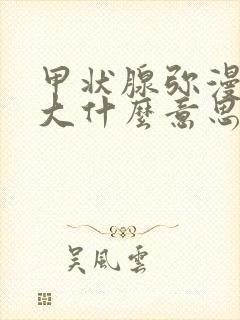 甲状腺弥漫
大什麼意思
吴風雲